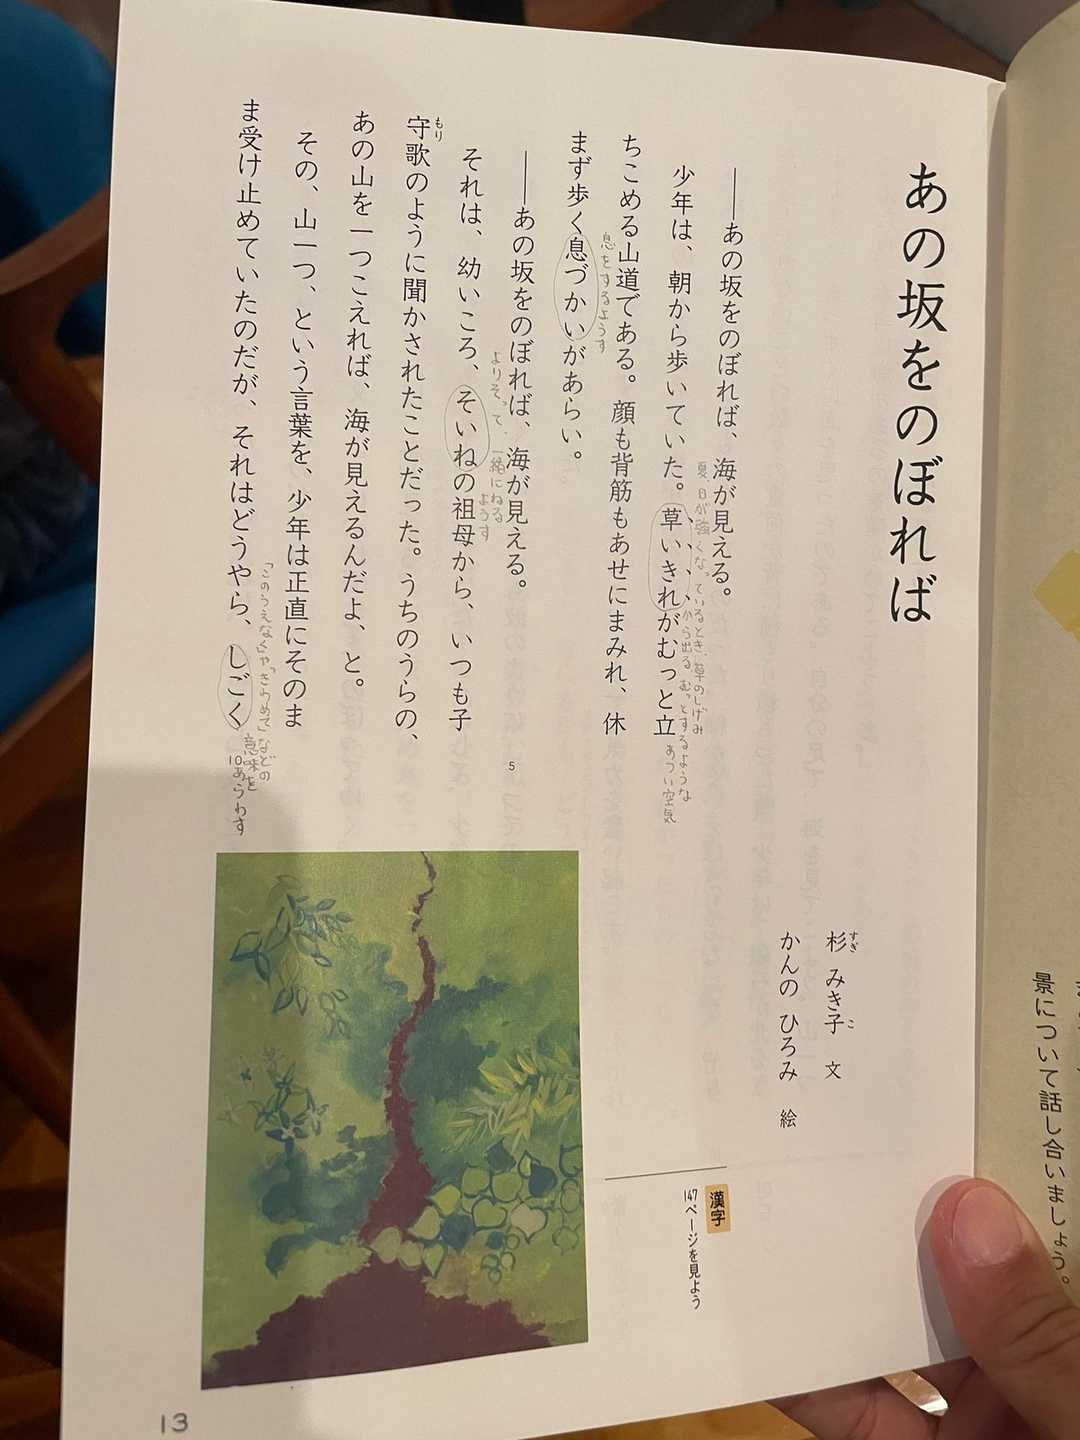 景について話し合いましょう。
あの坂をのぼれば
杉 みき子 文
すぎ こ
かんの ひろみ 絵
――あの坂をのぼれば、海が見える。
少年は、朝から歩いていた。草いきれがむっと立
夏、日が強くなっているとき、草のしげみ
から出る むっとするような
あつい空気
ちこめる山道である。顔も背筋もあせにまみれ、休
まず歩く息づかいがあらい。
息をするようす
――あの坂をのぼれば、海が見える。
5
それは、幼いころ、そいねの祖母から、いつも子
よりそって、一緒にねる
ようす
守歌のように聞かされたことだった。うちのうらの、
もり
あの山を一つこえれば、海が見えるんだよ、と。
その、山一つ、という言葉を、少年は正直にそのま
ま受け止めていたのだが、それはどうやら、しごく
「このうえなく」や「きわめて」などの
意味を
あらわす
10
漢字
147ページを見よう
13